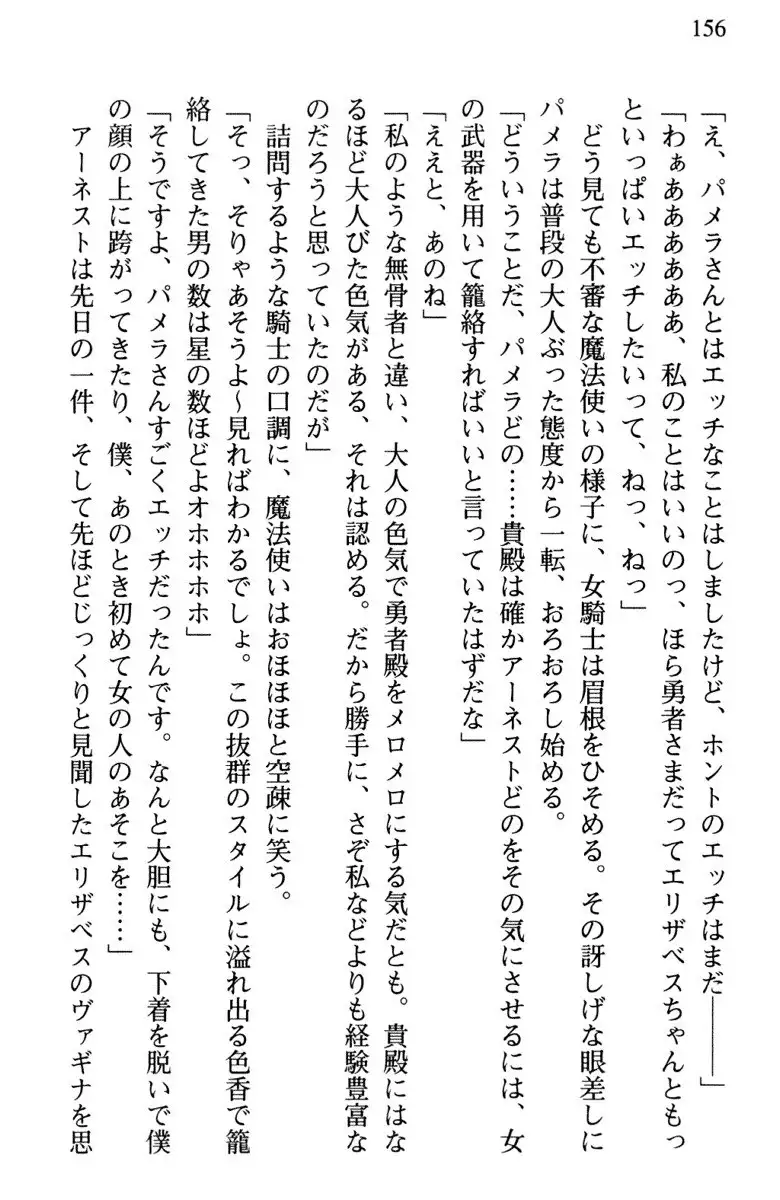 156
「え、パメラさんとはエッチなことはしましたけど、ホントのエッチはまだ――」
「わぁああああああ、私のことはいいのっ、ほら勇者さまだってエリザベスちゃんともっ
といっぱいエッチしたいって、ねっ、ねっ」
どう見ても不審な魔法使いの様子に、女騎士は眉根をひそめる。その訝しげな眼差しに
パメラは普段の大人ぶった態度から一転、おろおろし始める。
「どういうことだ、パメラどの……貴殿は確かアーネストどのをその気にさせるには、女
の武器を用いて籠絡すればいいと言っていたはずだな」
「ええと、あのね」
「私のような無骨者と違い、大人の色気で勇者殿をメロメロにする気だとも。貴殿にはな
るほど大人びた色気がある、それは認める。だから勝手に、さぞ私などよりも経験豊富な
のだろうと思っていたのだが」
詰問するような騎士の口調に、魔法使いはおほほほと空疎に笑う。
「そっ、そりゃあそうよ〜見ればわかるでしょ。この抜群のスタイルに溢れ出る色香で籠
絡してきた男の数は星の数ほどよオホホホホ」
「そうですよ、パメラさんすごくエッチだったんです。なんと大胆にも、下着を脱いで僕
の顔の上に跨がってきたり、僕、あのとき初めて女の人のあそこを……」
アーネストは先日の一件、そして先ほどじっくりと見聞したエリザベスのヴァギナを思